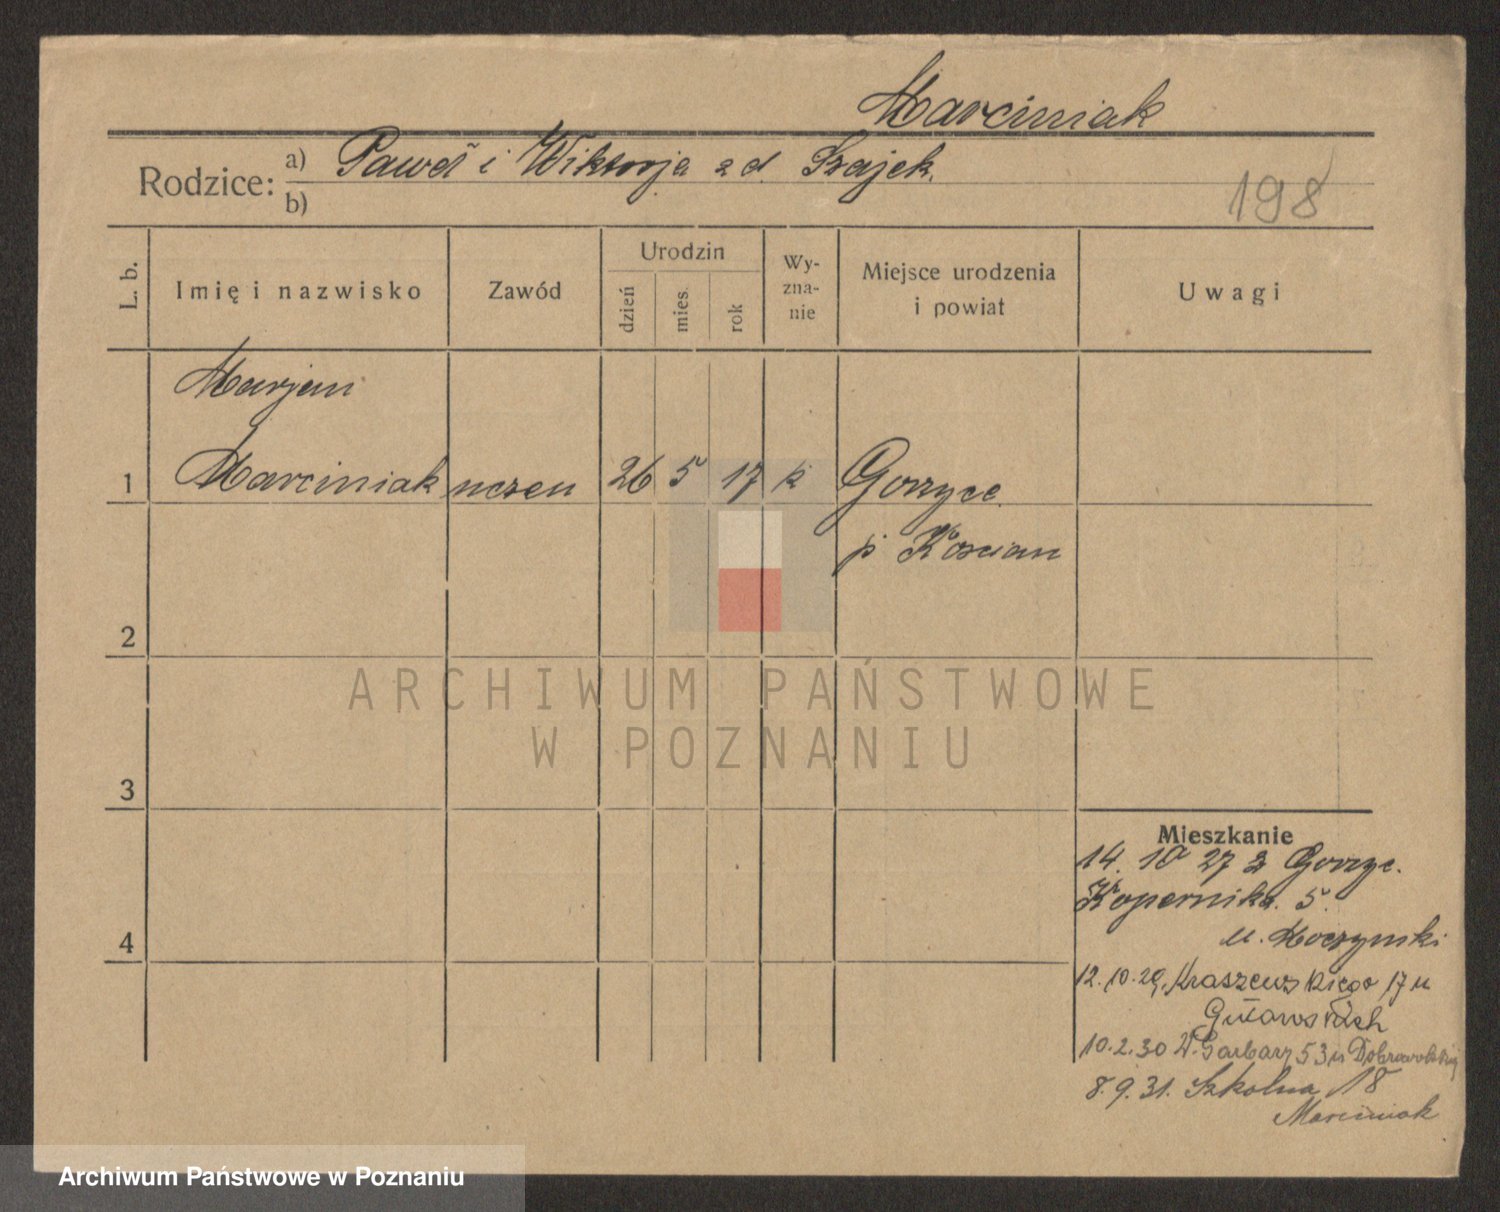 Marciniak
Rodzice: a) Paweł i Wiktorja z d. Szajek.
b)
198
L. b.
Imię i nazwisko
Zawód
Urodzin
dzień
mies.
rok
Wy-
zna-
nie
Miejsce urodzenia
i powiat
Uwagi
Marjan
1 Marciniak uczeń 26 5 17 k Gorzyce
p Kościan
2
ARCHIWUM PAŃSTWOWE
W POZNANIU
3
Mieszkanie
14. 10 27 z Gorzyc.
Kopernika. 5.
4
u. Moczynski
12.10.29. Kraszewskiego 17 u
10.2.30 W. Garbary 53 u Dobrowolskiej
8.9.31. Szkolna 18
Marciniak
Archiwum Państwowe w Poznaniu